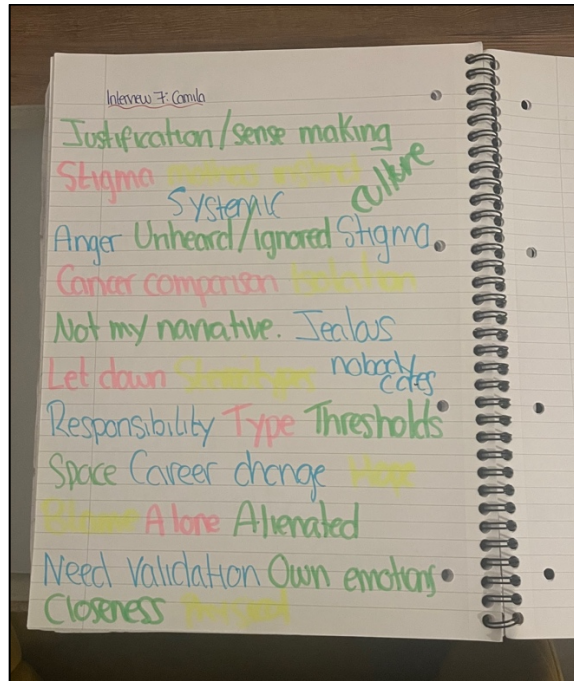 Interview 7: Camila
Justification/sense making
Stigma culture
Systemic
Anger Unheard/ignored Stigma
Cancer comparison Isolation
Not my narrative. Jealous
Let down Stereotypes nobody cares
Responsibility Type Thresholds
Space Career change Hope
Blame Alone Alienated
Need Validation Own emotions
Closeness